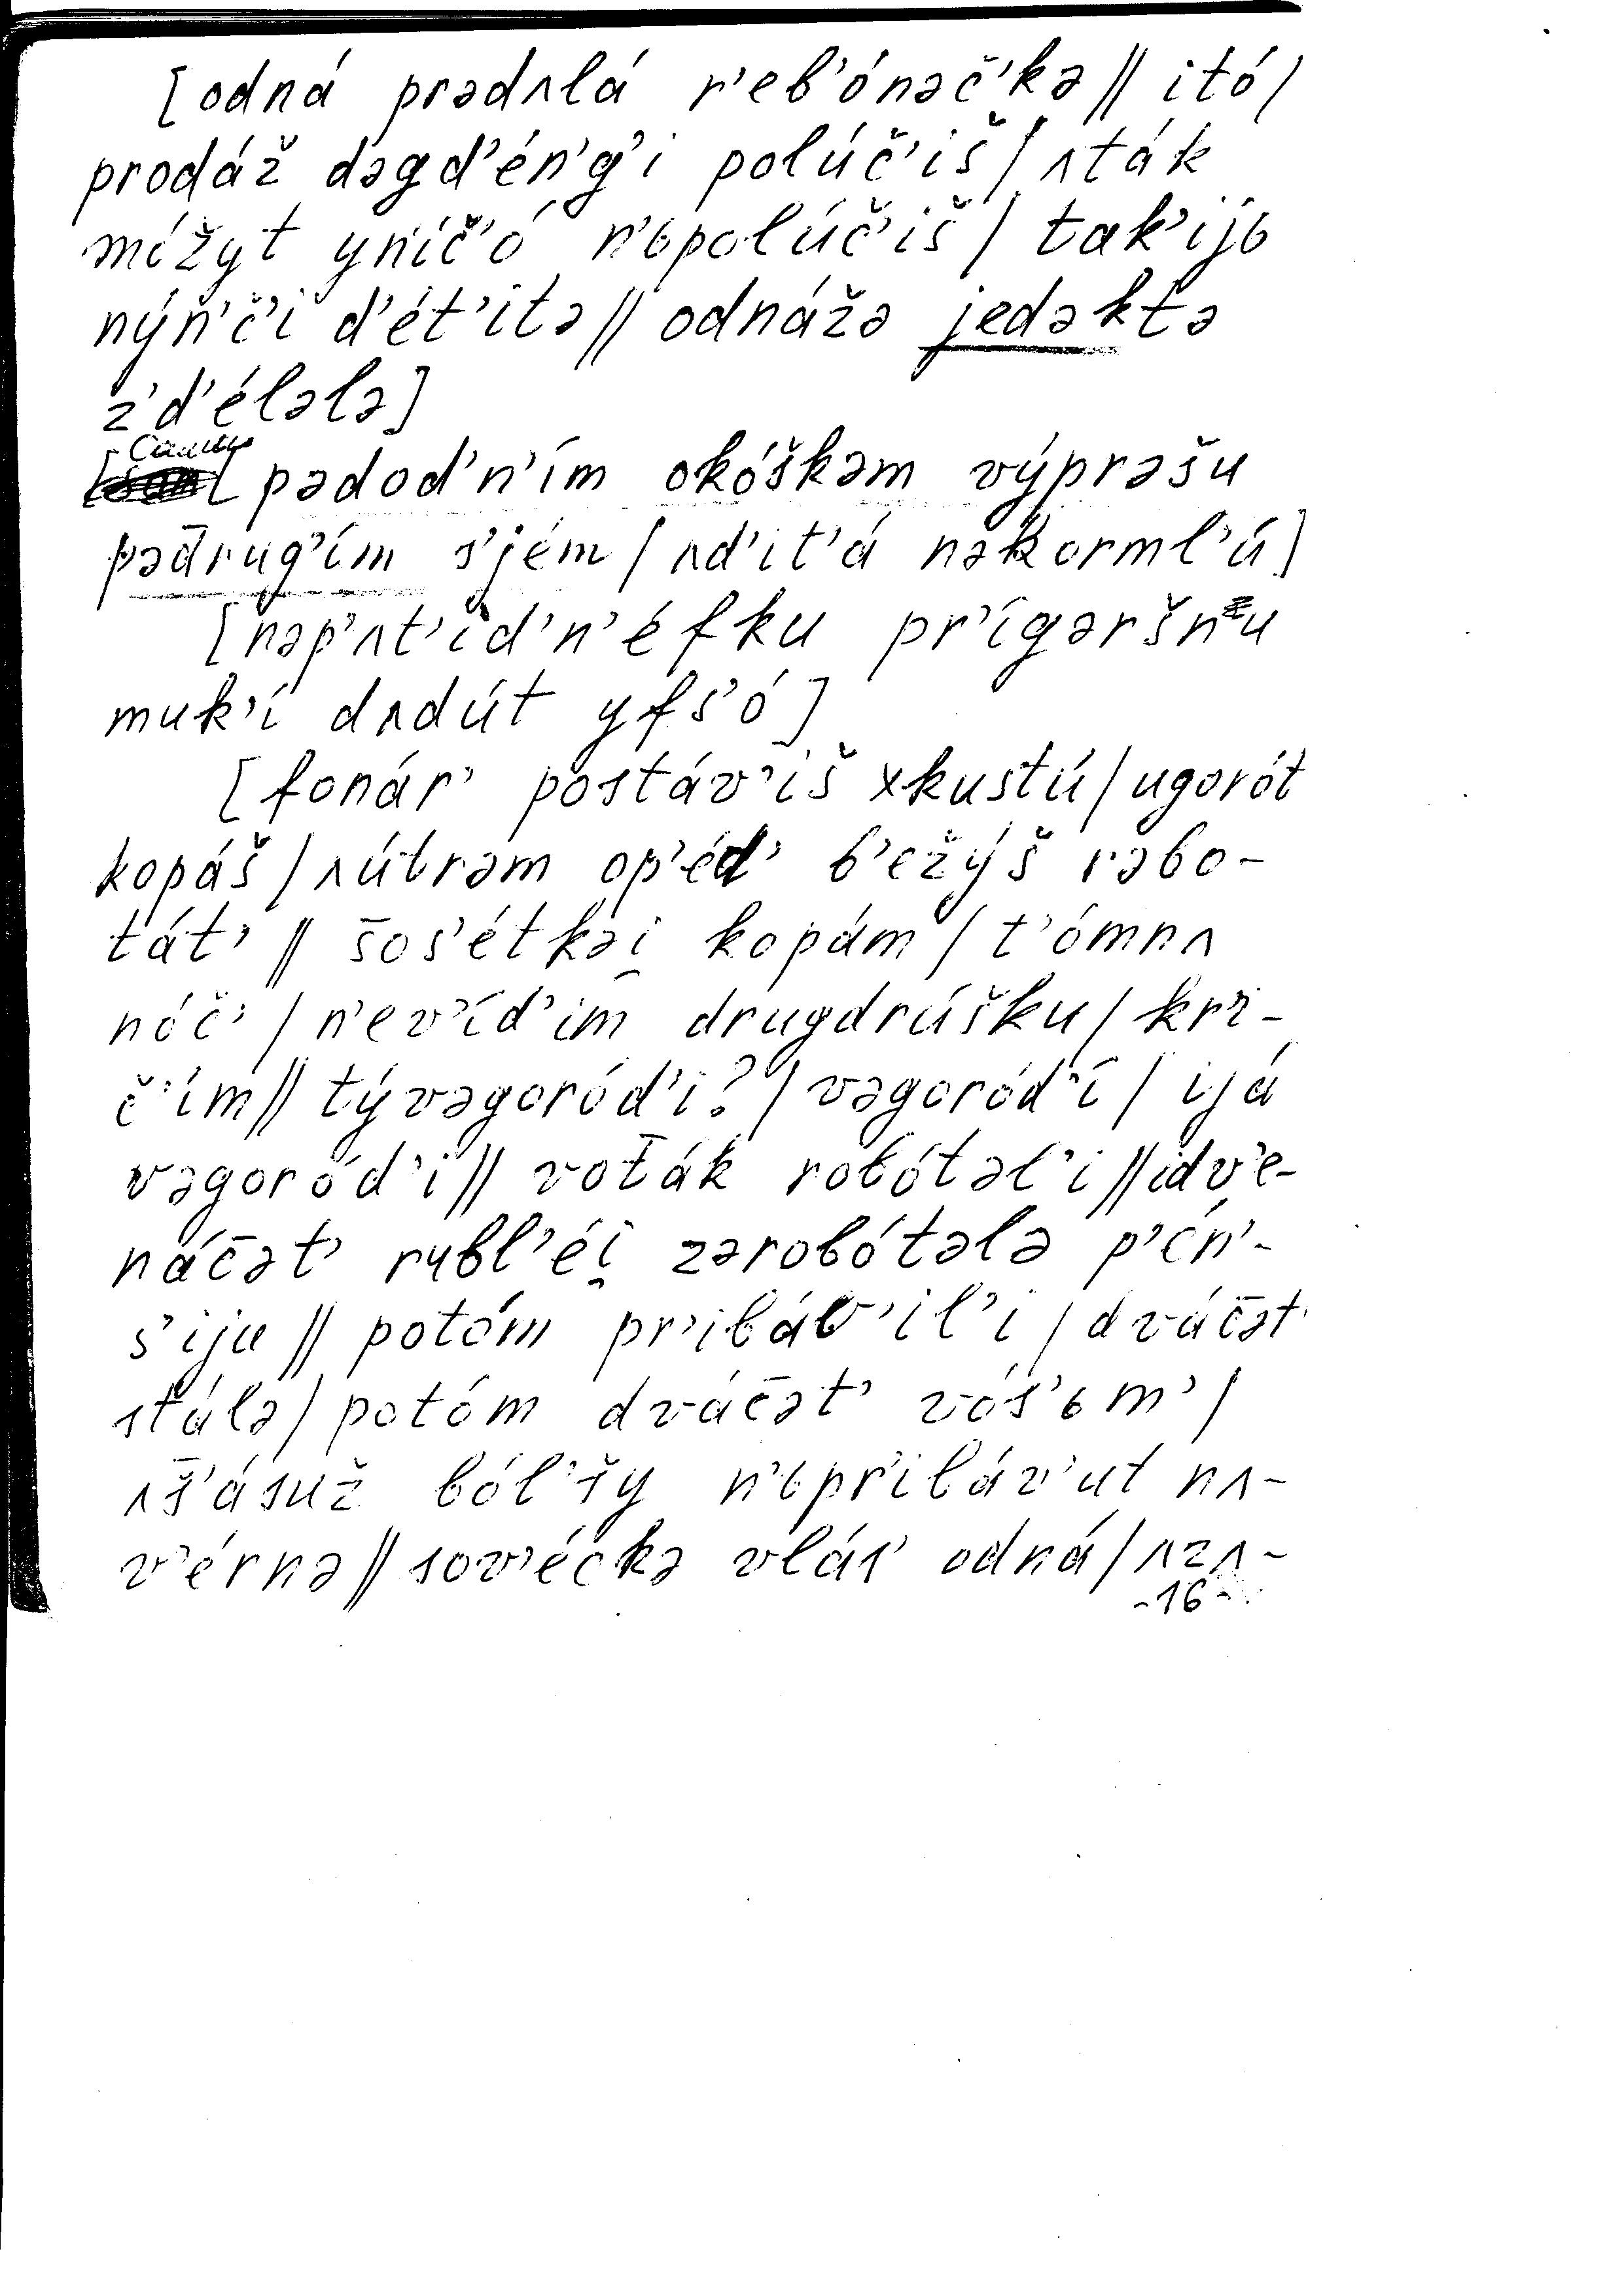 [odná prədʌlá r’eb’ónəč’kə // itó /
prodáž dəgd’én’g’i polúč’iš / ʌták
móžyt yn’ič’ó n’ьpolúč’iš / tak’ijь
nýn’č’i d’ét’itə // odnážə jedəktə
z’d’élələ]
[pədod’n’ím okóškəm výprəšu
pəd̄rug’ím s’jém / ʌd’it’á nəkorml’ú]
[nəp’ʌt’id’n’éfku pr’ígəršn’u
muk’í dʌdút yfs’ó]
[fonár’ postáv’iš xkustú / ugorót
kopáš / ʌútrəm op’éd’ b’ežýš rəbo-
tát’ // s̄os’étkəi̯ kopám / t’ómnʌ
nóč’ / n’ev’íd’im drugdrúšku / kr’i-
č’ím // tývəgoród’i? / vəgoród’i / ijá
vəgoród’i // vot̄ák robótəl’i // idv’e-
nác̄ət’ rubl’éi̯ zərobótələ p’én’-
s’iju // potóm pr’ibáv’il’i / dvác̄ət’
stálə / potóm dvác̄ət’ vós’ьm’ /
ʌs̄’ásuž ból’šy n’ьpr’ibáv’ut nʌ-
v’érnə // sov’éckə vlás’ odná / ʌzʌ-
-16-